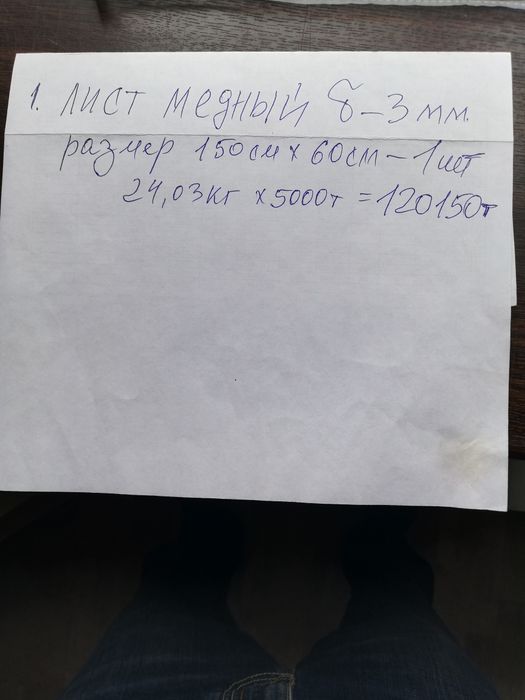 1. лист медный δ-3мм.
размер 150см х 60см - 1шт
24,03кг х 5000т = 120150т